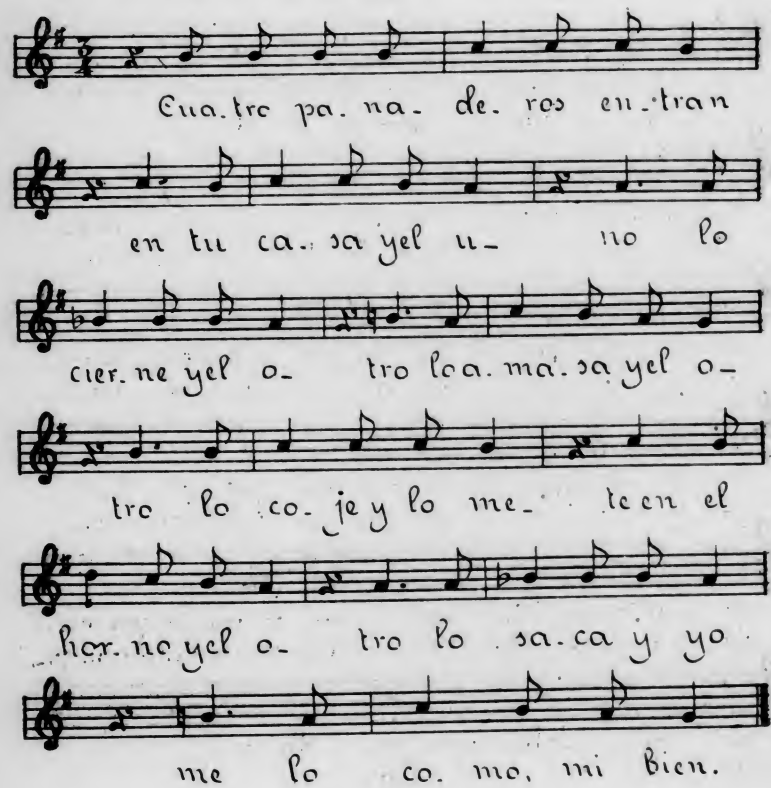 3/4
Cua.tro pa. na- de. ros en-tran
en tu ca. sa yel u- no lo
cier. ne yel o- tro loa. ma. sa yel o-
tro lo co- je y lo me- te en el
hor. no yel o- tro lo sa. ca y yo
me lo co. mo, mi Bien.